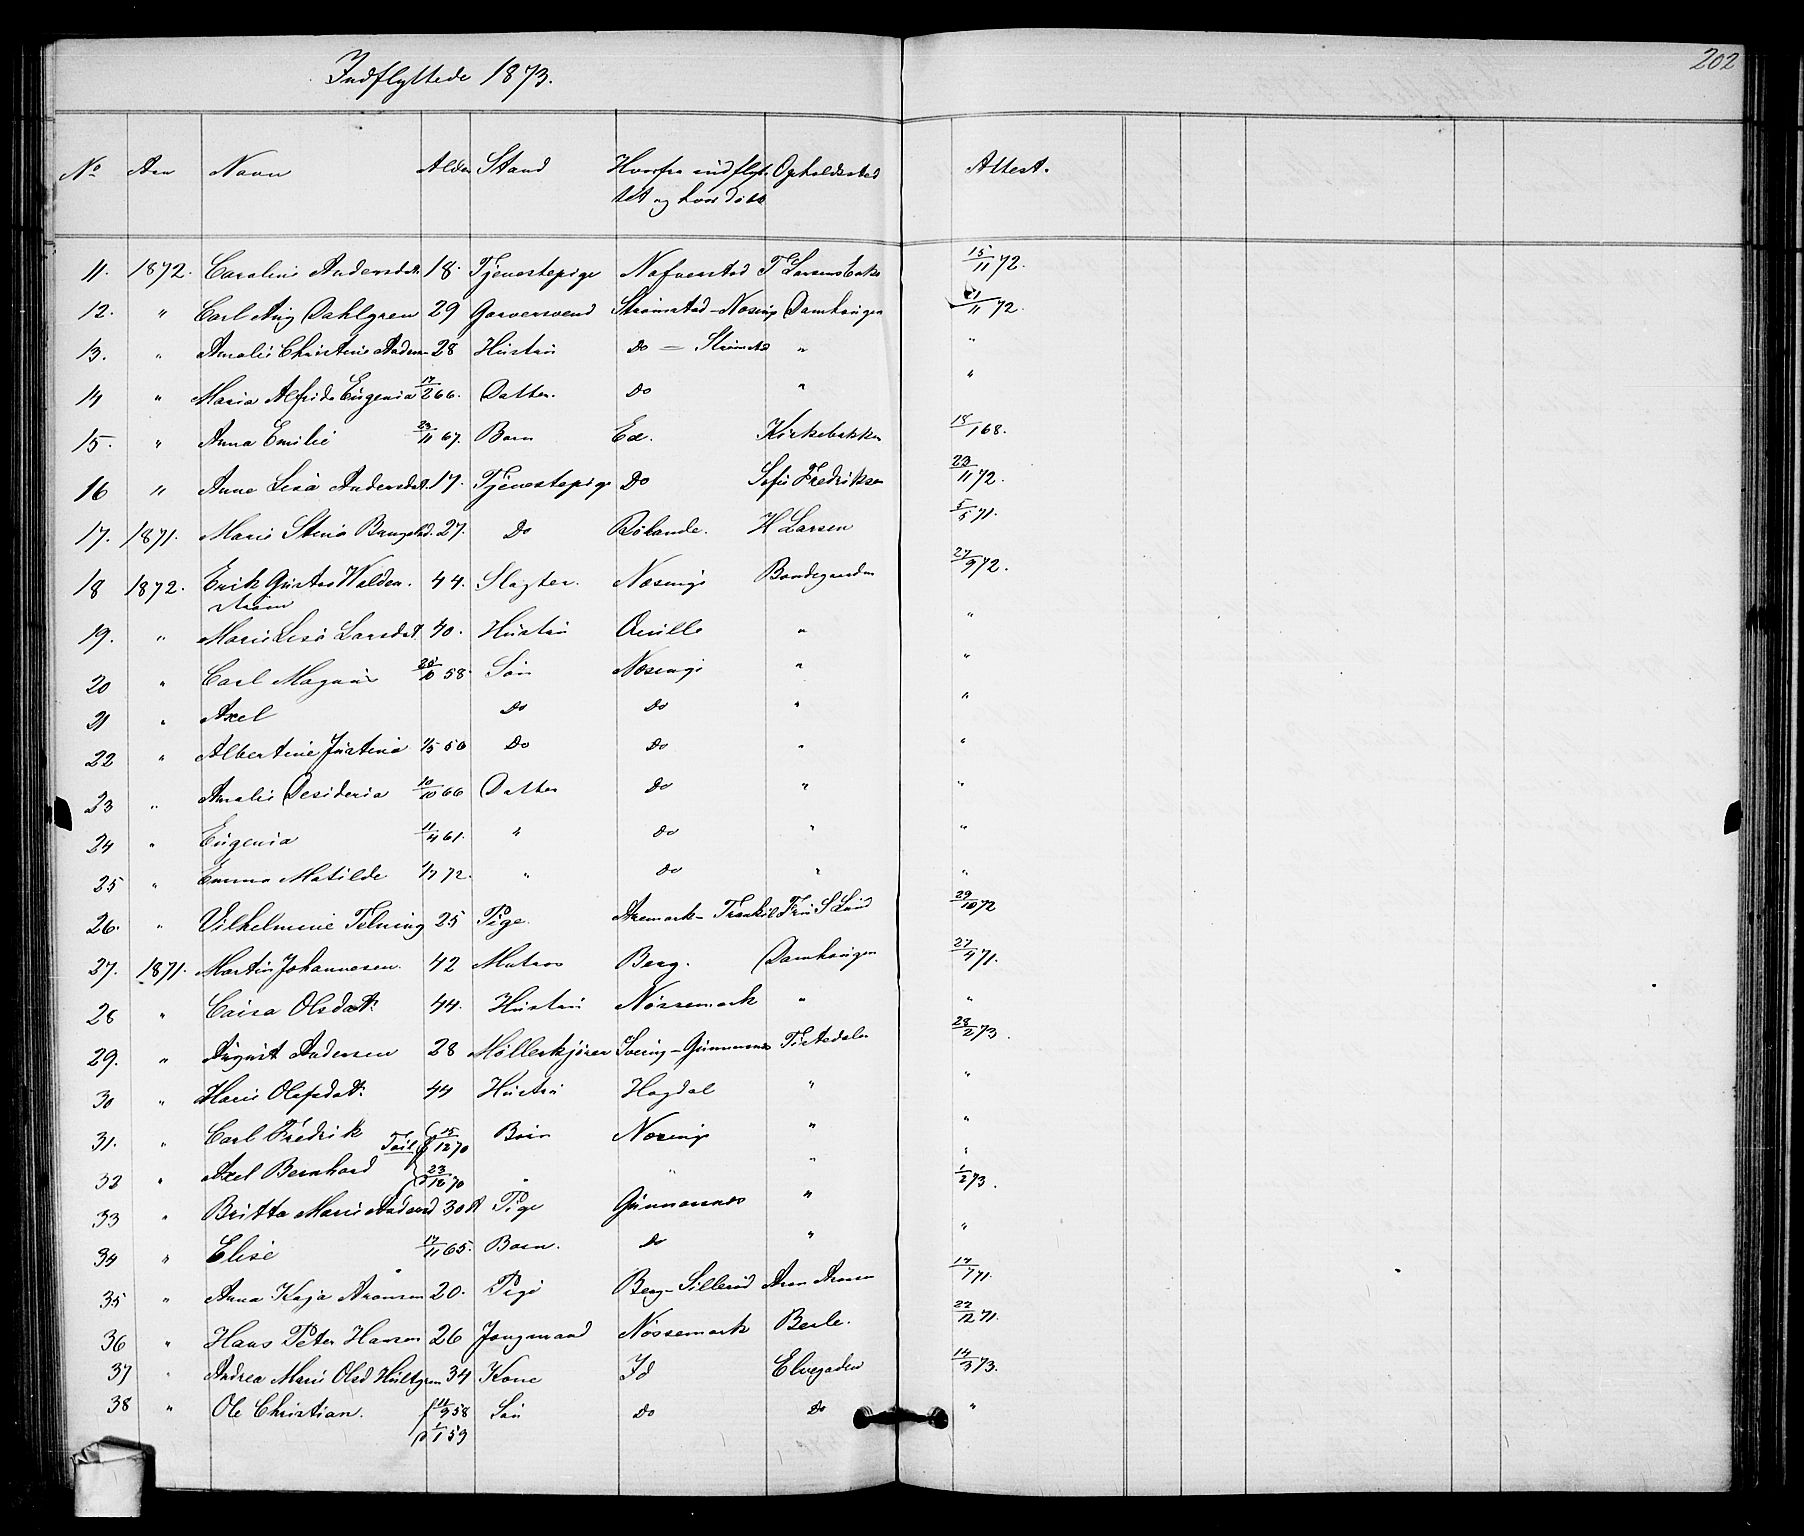 Indflyttede 1873.
202
No Aar Navn Alder Stand Hvorfra indflyt- Opholdssted Attest.
tet og hvor døbt
11. 1872. Caroline Andersdt. 18. Tjenestepige Nafverstad T Larsens Enke 15/11 72.
12. " Carl Aug Dahlgren 29 Garversvend Strømstad - Næsinge Damhaugen 21/11 72.
13. " Amalie Christine Andersen 28 Hustru Do - Strømstad " "
14 " Maria Alfrida Eugenia 17/2 66. Datter. Do " "
15. " Anna Emilie 23/11 67. Barn Ed. Kirkebakken 18/1 68.
16 " Anne Lisa Andersdt. 17. Tjenestepige Do Sofie Fredriksen 23/11 72.
17. 1871. Marie Stina 27. Do H Larsen 5/5 71.
18 1872. Erik Gustav Walden- 44. Slagter. Næsinge Bondegaarden 27/9 72.
strøm
19. " Marie Lisa Larsdt. 40. Hustru Qville " "
20 " Carl Magnus 25/10 58. Søn Næsinge " "
21 " Axel Do Do " "
22 " Albertine Justina 1/5 56 Do Do " "
23 " Amalie Desideria 10/10 66 Datter Do " "
24 " Eugenia 11/4 61. " Do " "
25 " Emma Matilde 1/7 72. " Do " "
26. " Vilhelmine 25 Pige. Aremark - Trankil Fru S Lund 29/10 72
27. 1871. Martin Johannesen. 42 Matros Berg. Damhaugen 27/4 71.
28 " Caisa Olsdat. 44. Hustru Nøssemark " "
29. " August Andersen 28 Møllerkjører Sverig - Gunnarsnæs Tistedalen 28/2 73.
30 " Marie Olafsdat. 44 Hustru Hogdal " "
31. " Carl Fredrik Tvil. f 15/12 70 Børn Næsinge " "
32 " Axel Bernhard d 23/12 70 " " " 1/2 73.
33 " Britta Marie Andersd 30 Pige Gunnarsnæs " "
34 " Elise 17/11 65. Barn. Do "
35 " Anna Kaja Aronsen 20. Pige Berg - Sillerud Aron Aronsen 14/7 71.
36 " Hans Peter Hansen 26 Jongmand Nøssemark Berle. 22/12 71.
37 " Andrea Marie Olsd Hultgren 34 Kone Id Elvegaden 14/3 73.
38 " Ole Christian. f 11/9 58 Søn Do Do "
d 1/1 59